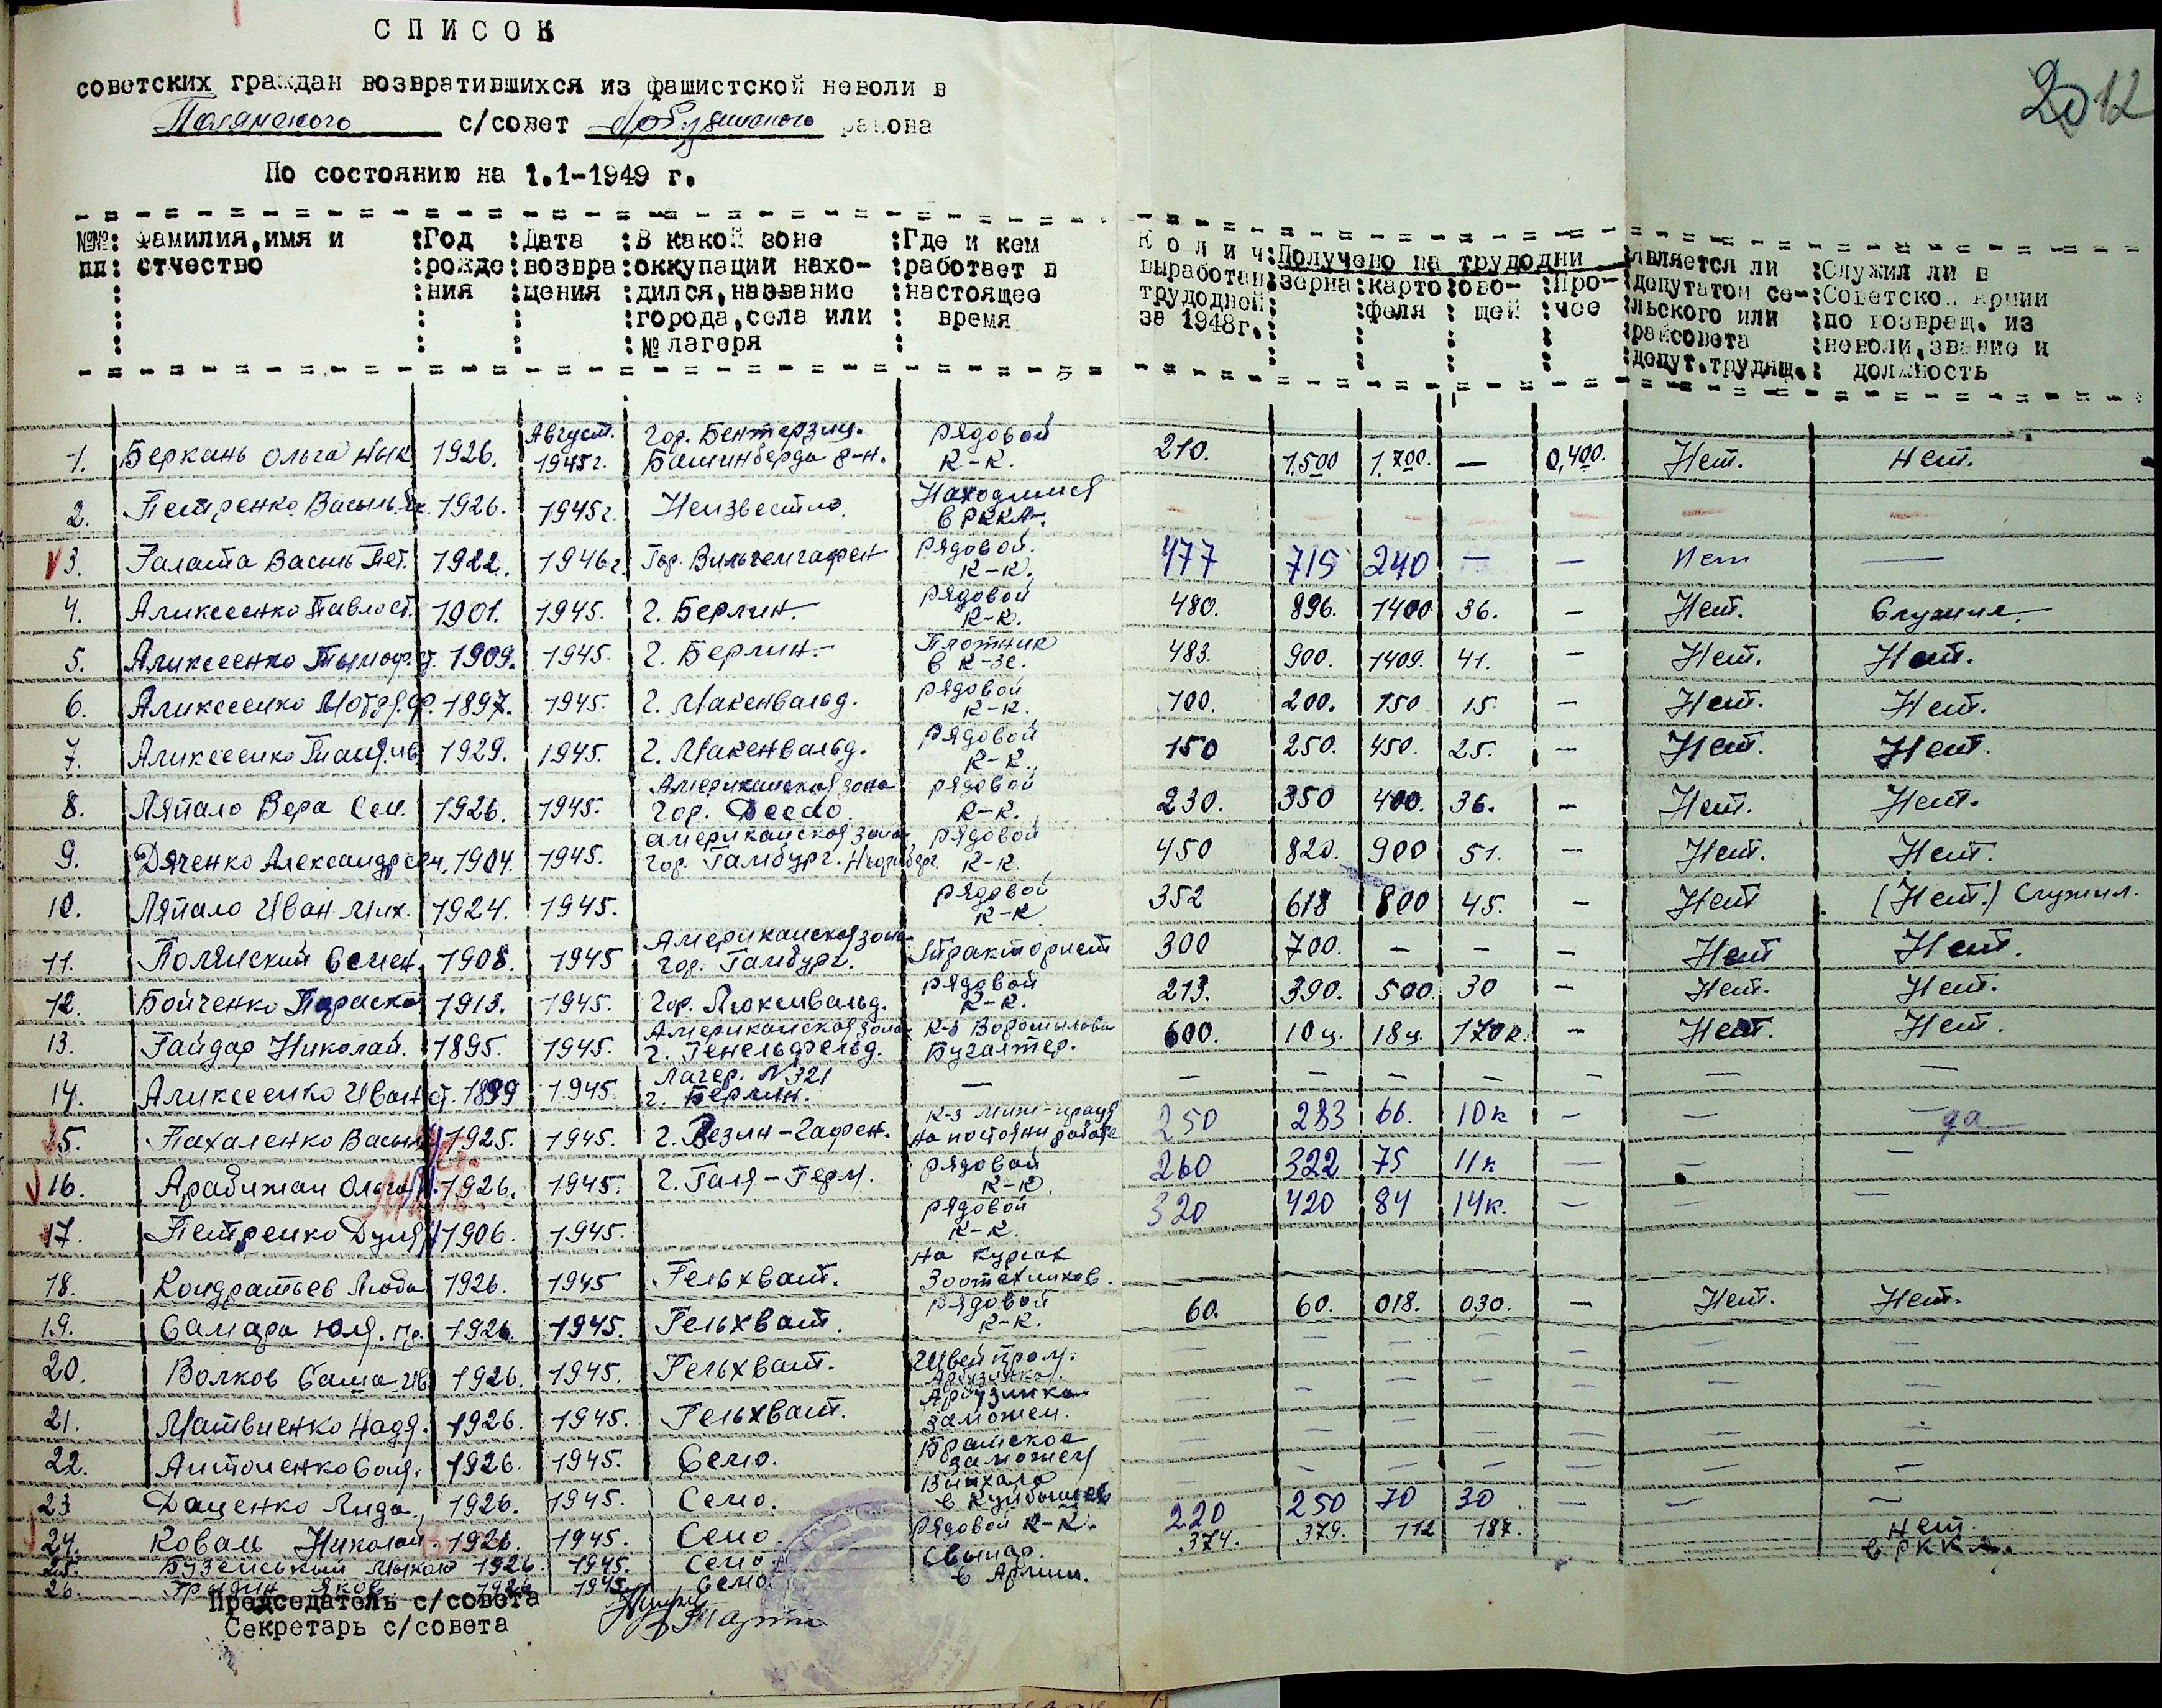 СПИСОК
советских граждан возвратившихся из фашистской неволи в
Полянского с/совет Арбузинского района
По состоянию на 1.1-1949 г.
2012
№№ пп : Фамилия, имя и отчество : Год рождения : Дата возвращения : В какой зоне оккупации находился, название города, села или № лагеря : Где и кем работает в настоящее время : Колич выработан трудодней за 1948г. : Получено на трудодни : зерна : картофеля : овощей : прочее : является ли депутатом сельского или райсовета депут. трудящ. : Служил ли в Советской Армии по возвращ. из неволи, звание и должность
1. Беркань Ольга Нык 1926. Август. 1945г. Гор. рядовой К-К. 210. 1.500 1.700. — 0,400. Нет. Нет.
2. Петренко Василь 1926. 1945г. Неизвестно. Находится в РККА. — — — — — — —
3. Галата Василь Пет. 1922. 1946г Гор. Вильгемгафен рядовой. К-К. 477 715 240 — — Нет —
4. Аликсеенко Павло ст. 1901. 1945. г. Берлин. рядовой К-К. 480. 896. 1400 36. — Нет. Служил.
5. Аликсеенко Тымоф. ст. 1909. 1945. г. Берлин. Плотник в К-зе. 483. 900. 1409. 41. — Нет. Нет.
6. Аликсеенко Мотря ф. 1897. 1945. г. Макенвальд. рядовой К-К. 100. 200. 150 15. — Нет. Нет.
7. Аликсеенко Таня. ив 1929. 1945. г. Макенвальд. рядовой К-К. 150 250. 450. 25. — Нет. Нет.
8. Ляпало Вера Сем. 1926. 1945. Американская зона гор. рядовой К-К. 230. 350 400. 36. — Нет. Нет.
9. Дяченко Александр 1904. 1945. американская зона гор. Гамбург. рядовой К-К. 450 820. 900 51. — Нет. Нет.
10. Ляпало Иван Мих. 1924. 1945. рядовой К-К 352 618 800 45. — Нет (Нет.) Служил.
11. Полянский Семен 1908. 1945 Американская зона гор. Гамбург. Тракторист 300 700. — — — Нет Нет.
12. Бойченко Параска 1913. 1945. Гор. Люкенвальд. рядовой К-К. 213. 390. 500. 30 — Нет. Нет.
13. Гайдар Николай. 1895. 1945. Американская зона г. Генельдфельд. К-з Ворошылова Бугалтер. 600. 10ц. 18ц. 170к. — Нет. Нет.
14. Аликсеенко Иван ст. 1899 1945 Лагер. N 321 г. Берлин. — — — — — — — —
15. Пахаленко Васил 1925. 1945. г. Везин-Гафен. К-з на постоян работе 250 283 66. 10к — — да
16. Арабижан Ольга 1926. 1945. г. Галя-Герм. рядовой К-К. 260 322 75 11к — — —
17. Петренко Дуня 1906. 1945. рядовой К-К. 320 420 84 14к. — — —
18. Кондратьев Люба 1926. 1945 Гельхвант. на курсах Зоотехников.
19. Самара Юля. гр. 1926 1945. Гельхвант. рядовой К-К. 60. 60. 018. 030. — Нет. Нет.
20. Волков Саша Ив 1926. 1945. Гельхвант. Швейпром. Арбузинка. — — — — — — —
21. Матвиенко Надя. 1926. 1945. Гельхвант. Арбузинка заможен. — — — — — — —
22. Антоненко Соня. 1926. 1945. Село. Братское заможен — — — — — — —
23 Даценко Лида. 1926. 1945. Село. Выихала в Куйбышев — — — — — — —
24. Коваль Николай 1926. 1945. Село рядовой К-К. 220 250 70 30 — — —
25. Бузейський Мыкол 1926. 1945. Село Свынар. 374. 379. 112 187. нет.
26. Яков. 1926 1945. Село в Армии. в РККА.
Председатель с/совета
Секретарь с/совета